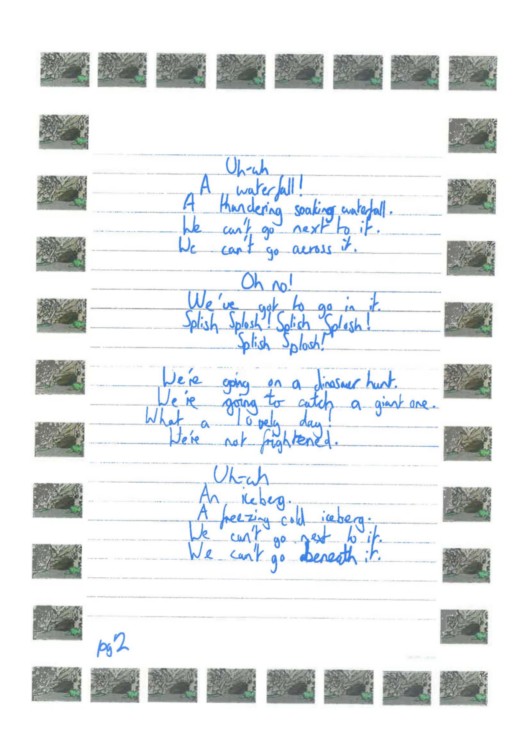 Uh-uh
A waterfall!
A thundering soaking waterfall.
We can't go next to it.
We can't go across it.
Oh no!
We've got to go in it.
Splish Splosh! Splish Splosh!
Splish Splosh!
We're going on a dinosaur hunt.
We're going to catch a giant one.
What a lovely day!
We're not frightened.
Uh-uh
An iceberg.
A freezing cold iceberg.
We can't go next to it.
We can't go beneath it.
pg 2